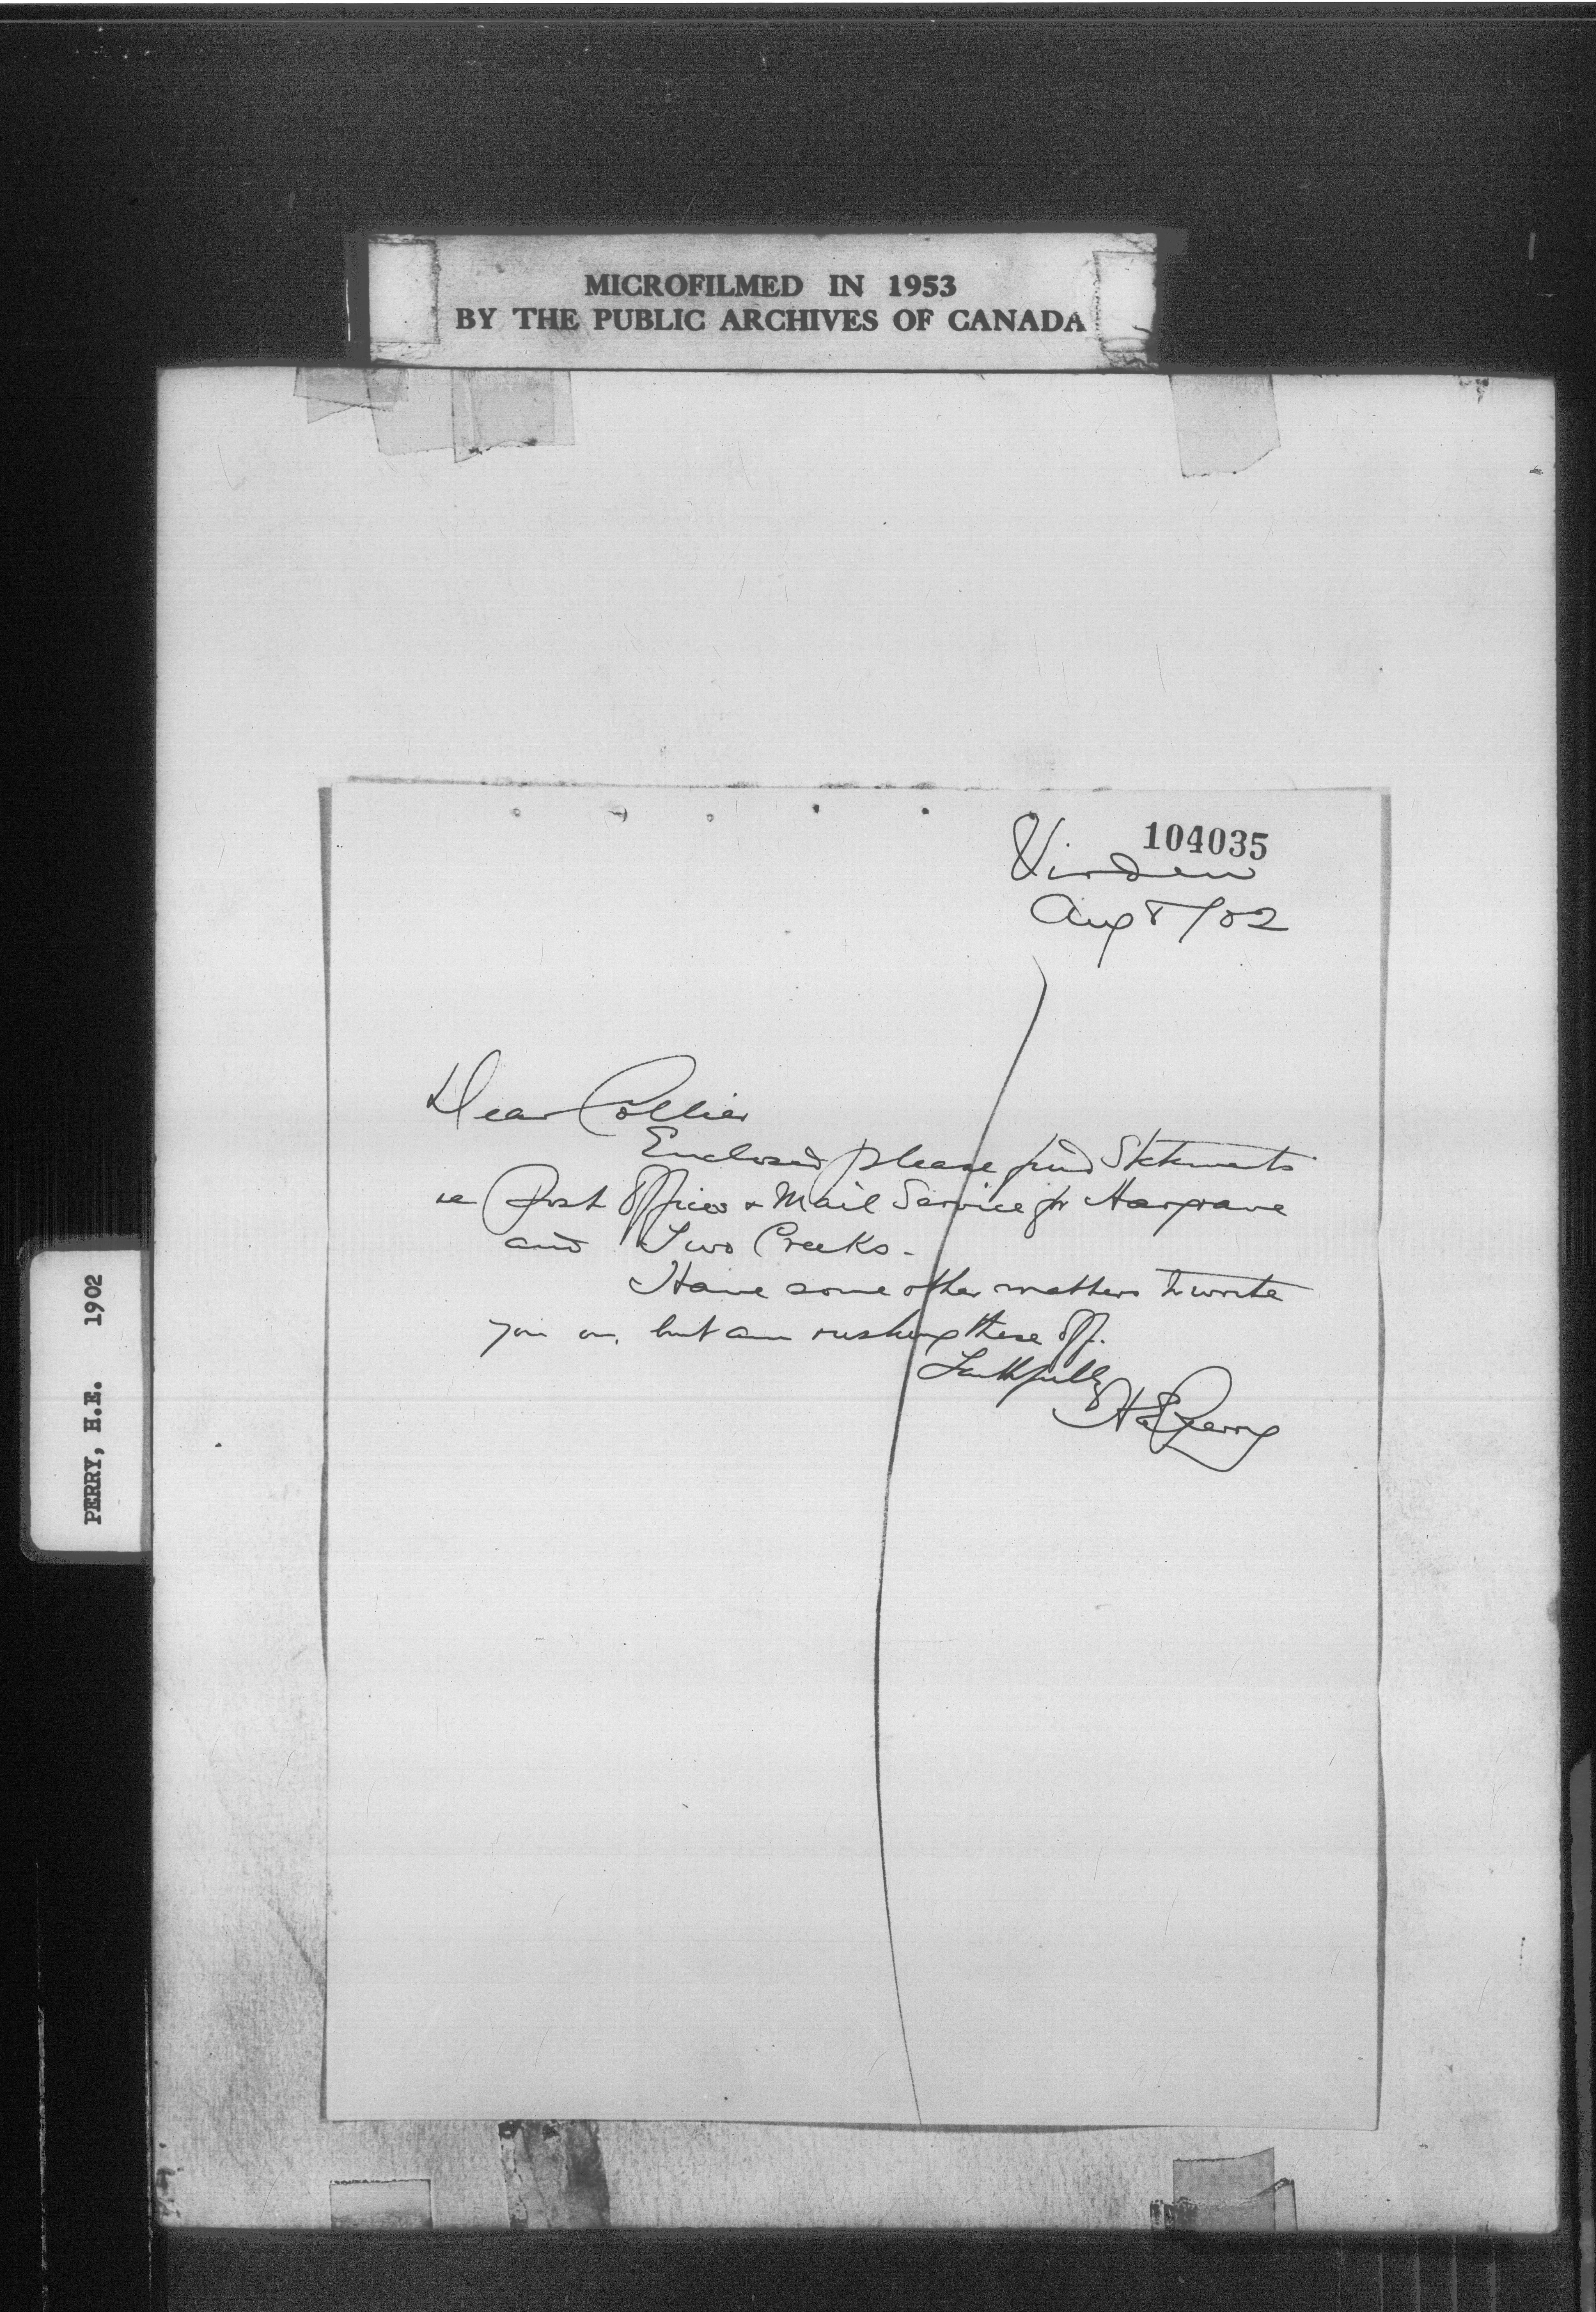 MICROFILMED IN 1953
BY THE PUBLIC ARCHIVES OF CANADA
104035
Virden
Aug 8/02
Dear Collier
Enclosed please find Statements
re Post Offices & Mail Service for Hargrave
and Two Creeks.
Have some other matters to write
you on, but am rushing these off.
Faithfully
H E Perry
PERRY, H.E. 1902